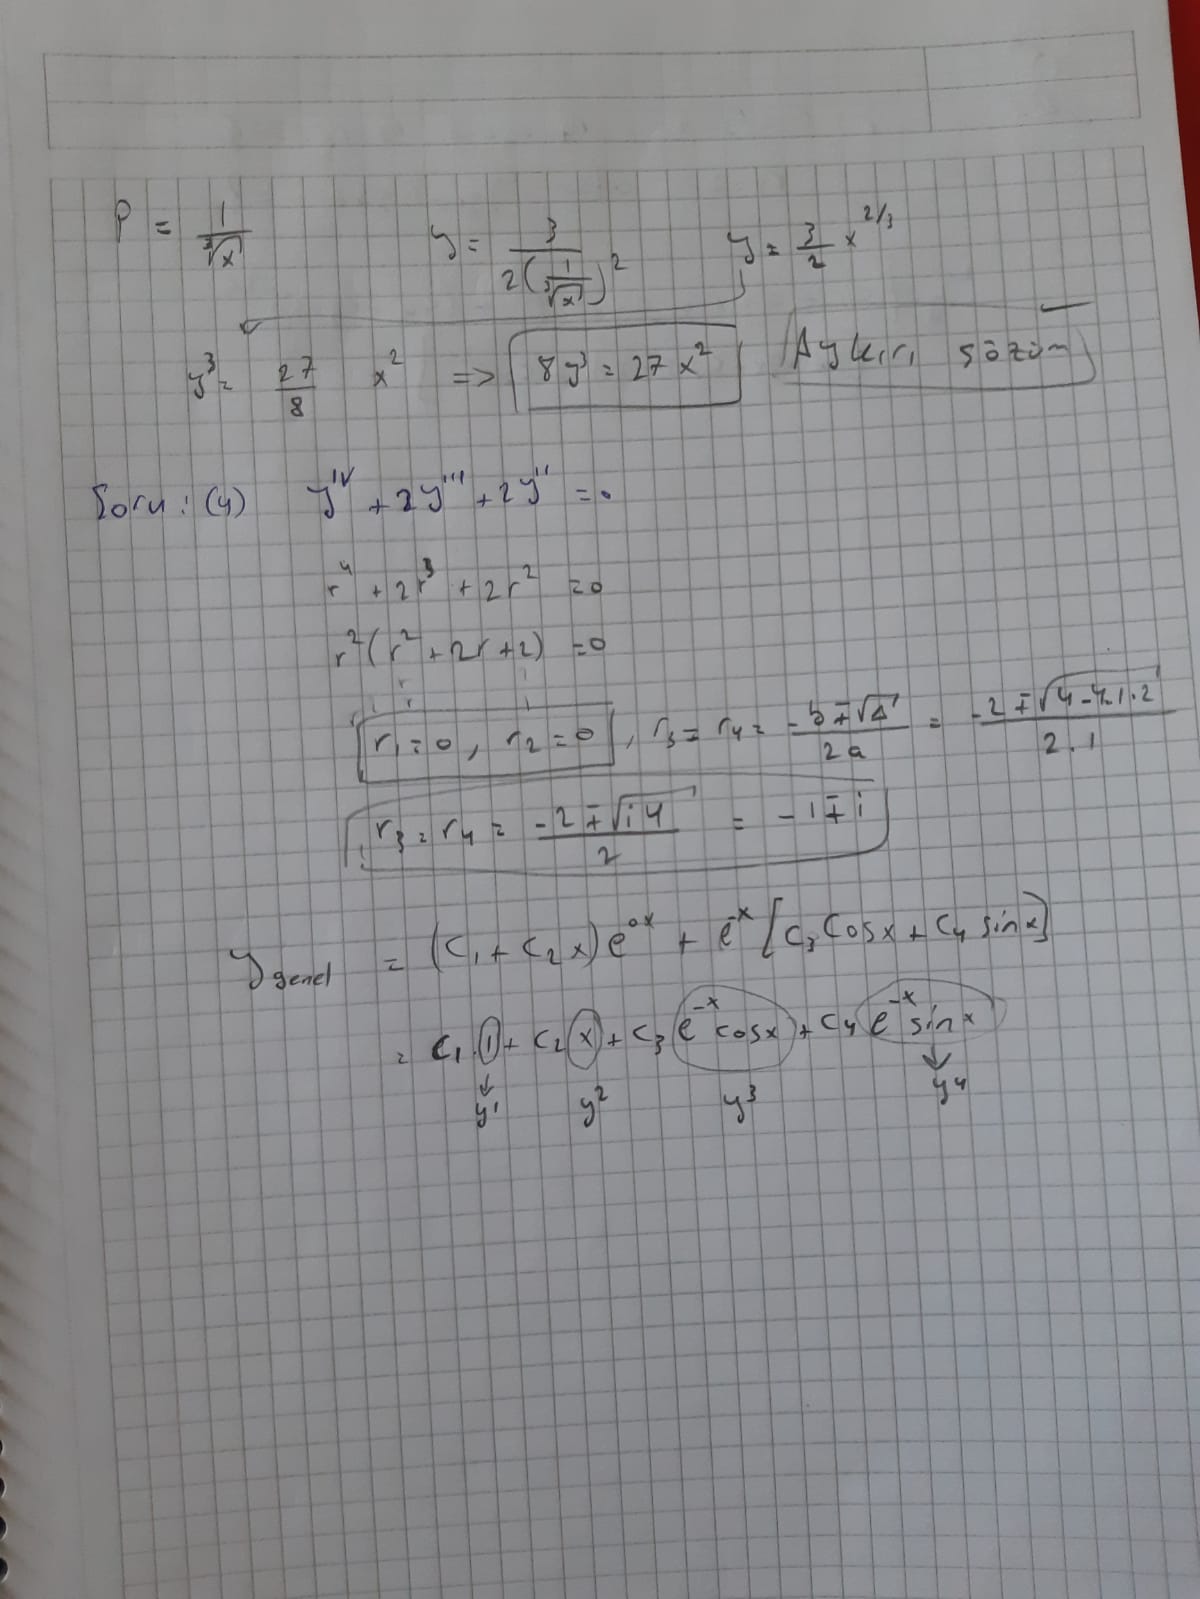 P = 1/∛x    y = 3/(2(1/∛x)²)    y = 3/2 x^(2/3)
y³ = 27/8 x² => 8y³ = 27x²    Aykırı çözüm
Soru: (4)    y^ıv + 2y''' + 2y'' = 0
r⁴ + 2r³ + 2r² = 0
r²(r² + 2r + 2) = 0
r₁ = 0, r₂ = 0, r₃ = r₄ = (-b ∓ √Δ)/2a = (-2 ∓ √(4-4.1.2))/2.1
r₃ = r₄ = (-2 ∓ √(i4))/2 = -1 ∓ i
y_genel = (c₁ + c₂x)e^(0x) + e^(-x)[c₃ cosx + c₄ sinx]
= c₁.1 + c₂x + c₃e^(-x)cosx + c₄e^(-x)sinx
y¹    y²    y³    y⁴